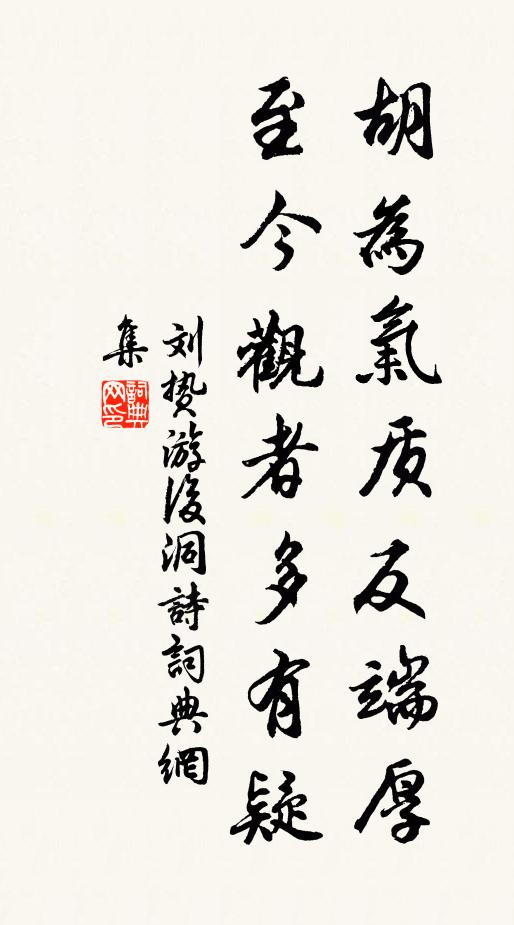 胡為氣质反端厚
至今觀者多有疑
刘挚游後洞詩詞典網
集
詞典
网印